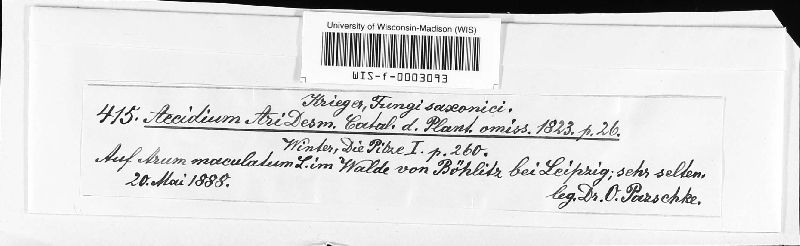 University of Wisconsin-Madison (WIS)
WIS-f-0003093
Krieger, Fungi saxonici.
415. Aecidium Ari Desm. Catal. d. Plant. omiss. 1823. p. 26.
Winter, Die Pilze I. p. 260.
Auf Arum maculatum L. im Walde von Böhlitz bei Leipzig; sehr selten.
20. Mai 1888.
leg. Dr. O. Pazschke.